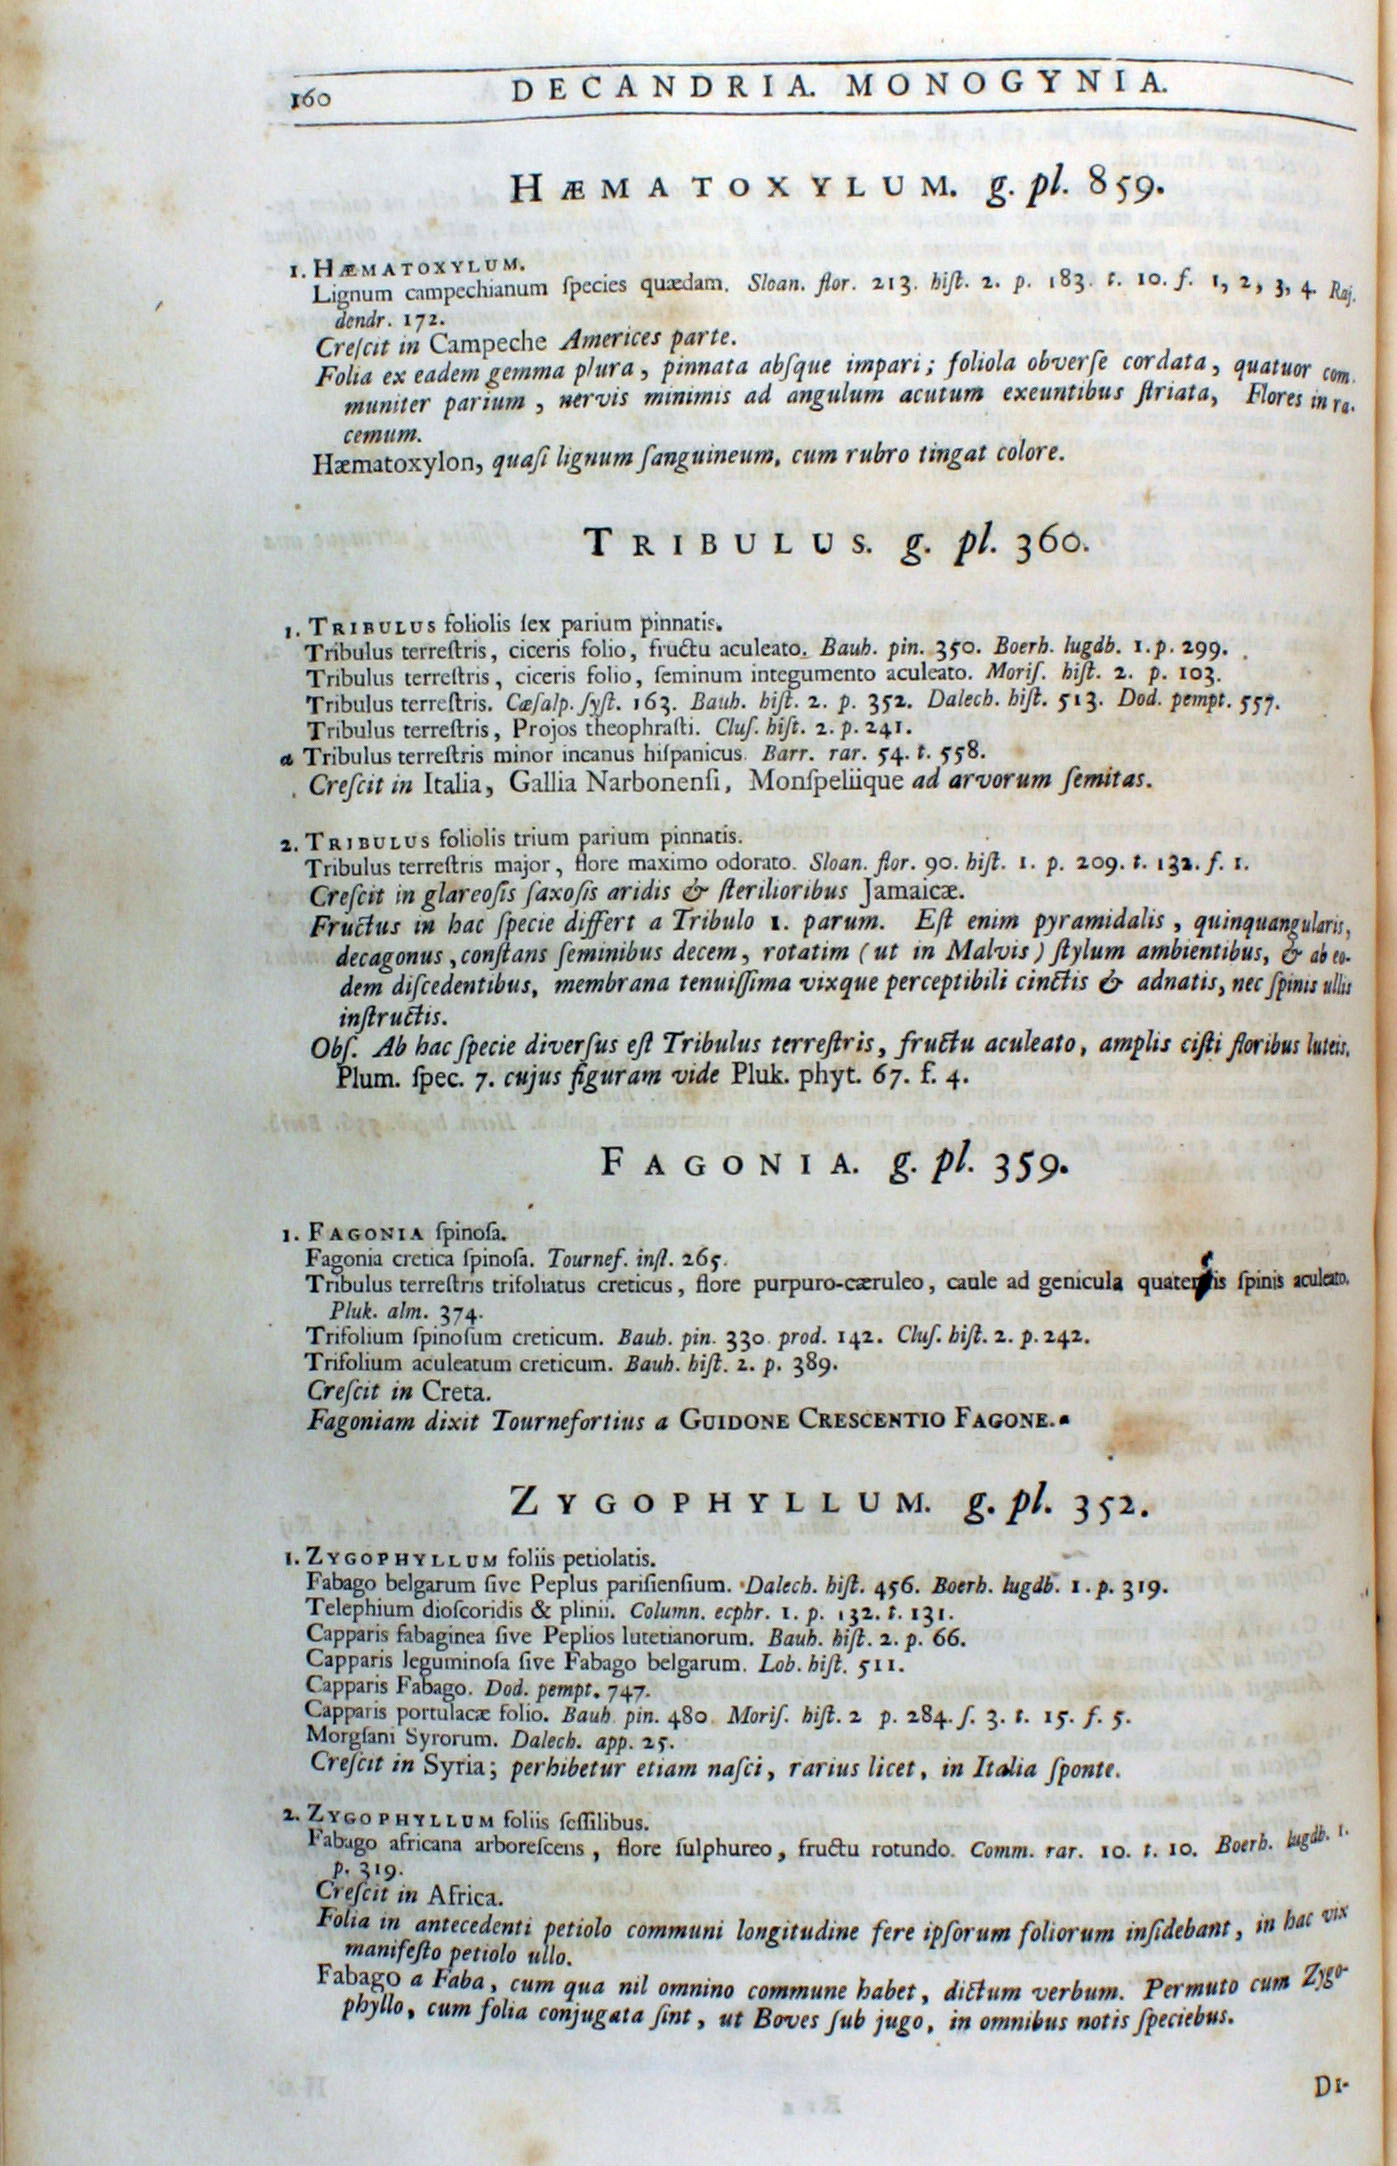 160 DECANDRIA. MONOGYNIA.
HÆMATOXYLUM. g. pl. 859.
1. HÆMATOXYLUM.
Lignum campechianum ſpecies quædam. Sloan. flor. 213. hiſt. 2. p. 183. t. 10. f. 1, 2, 3, 4. Raj.
dendr. 172.
Creſcit in Campeche Americes parte.
Folia ex eadem gemma plura, pinnata abſque impari; foliola obverſe cordata, quatuor com-
muniter parium, nervis minimis ad angulum acutum exeuntibus ſtriata, Flores in ra-
cemum.
Hæmatoxylon, quaſi lignum ſanguineum, cum rubro tingat colore.
TRIBULUS. g. pl. 360.
1. TRIBULUS foliolis ſex parium pinnatis.
Tribulus terreſtris, ciceris folio, fructu aculeato. Bauh. pin. 350. Boerh. lugdb. 1. p. 299.
Tribulus terreſtris, ciceris folio, ſeminum integumento aculeato. Moriſ. hiſt. 2. p. 103.
Tribulus terreſtris. Cæſalp. ſyſt. 163. Bauh. hiſt. 2. p. 352. Dalech. hiſt. 513. Dod. pempt. 557.
Tribulus terreſtris, Projos theophraſti. Cluſ. hiſt. 2. p. 241.
α Tribulus terreſtris minor incanus hiſpanicus. Barr. rar. 54. t. 558.
Creſcit in Italia, Gallia Narbonenſi, Monſpeliique ad arvorum ſemitas.
2. TRIBULUS foliolis trium parium pinnatis.
Tribulus terreſtris major, flore maximo odorato. Sloan. flor. 90. hiſt. 1. p. 209. t. 132. f. 1.
Creſcit in glareoſis ſaxoſis aridis & ſterilioribus Jamaicæ.
Fructus in hac ſpecie differt a Tribulo 1. parum. Eſt enim pyramidalis, quinquangularis,
decagonus, conſtans ſeminibus decem, rotatim (ut in Malvis) ſtylum ambientibus, & ab eo-
dem diſcedentibus, membrana tenuiſſima vixque perceptibili cinctis & adnatis, nec ſpinis ullis
inſtructis.
Obſ. Ab hac ſpecie diverſus eſt Tribulus terreſtris, fructu aculeato, amplis ciſti floribus luteis.
Plum. ſpec. 7. cujus figuram vide Pluk. phyt. 67. f. 4.
FAGONIA. g. pl. 359.
1. FAGONIA ſpinoſa.
Fagonia cretica ſpinoſa. Tournef. inſt. 265.
Tribulus terreſtris trifoliatus creticus, flore purpuro-cæruleo, caule ad genicula quaternis ſpinis aculeato.
Pluk. alm. 374.
Trifolium ſpinoſum creticum. Bauh. pin. 330. prod. 142. Cluſ. hiſt. 2. p. 242.
Trifolium aculeatum creticum. Bauh. hiſt. 2. p. 389.
Creſcit in Creta.
Fagoniam dixit Tournefortius a GUIDONE CRESCENTIO FAGONE.
ZYGOPHYLLUM. g. pl. 352.
1. ZYGOPHYLLUM foliis petiolatis.
Fabago belgarum ſive Peplus pariſienſium. Dalech. hiſt. 456. Boerh. lugdb. 1. p. 319.
Telephium dioſcoridis & plinii. Column. ecphr. 1. p. 132. t. 131.
Capparis fabaginea ſive Peplios lutetianorum. Bauh. hiſt. 2. p. 66.
Capparis leguminoſa ſive Fabago belgarum. Lob. hiſt. 511.
Capparis Fabago. Dod. pempt. 747.
Capparis portulacæ folio. Bauh. pin. 480. Moriſ. hiſt. 2 p. 284. ſ. 3. t. 15. f. 5.
Morgſani Syrorum. Dalech. app. 25.
Creſcit in Syria; perhibetur etiam naſci, rarius licet, in Italia ſponte.
2. ZYGOPHYLLUM foliis ſeſſilibus.
Fabago africana arboreſcens, flore ſulphureo, fructu rotundo. Comm. rar. 10. t. 10. Boerh. lugdb. 1.
p. 319.
Creſcit in Africa.
Folia in antecedenti petiolo communi longitudine fere ipſorum foliorum inſidebant, in hac vix
manifeſto petiolo ullo.
Fabago a Faba, cum qua nil omnino commune habet, dictum verbum. Permuto cum Zygo-
phyllo, cum folia conjugata ſint, ut Boves ſub jugo, in omnibus notis ſpeciebus.
DI-